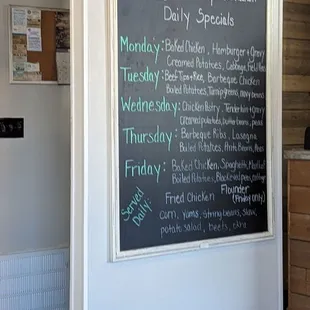 Daily Specials
Monday: Baked Chicken, Hamburger + Gravy
Creamed Potatoes, Cabbage, Field Peas
Tuesday: Beef Tips + Rice, Barbeque Chicken
Boiled Potatoes, Turnip greens, navy beans
Wednesday: Chicken Pastry, Tenderloin + gravy
Creamed potatoes, butter beans, peas
Thursday: Barbeque Ribs, Lasagna
Boiled Potatoes, Beans, Peas
Friday: Baked Chicken, Spaghetti, Meatloaf
Boiled Potatoes, Blackeyed peas, cabbage
Served
Daily:
Fried Chicken Flounder
(Friday only)
corn, yams, string beans, slaw,
potato salad, beets, okra